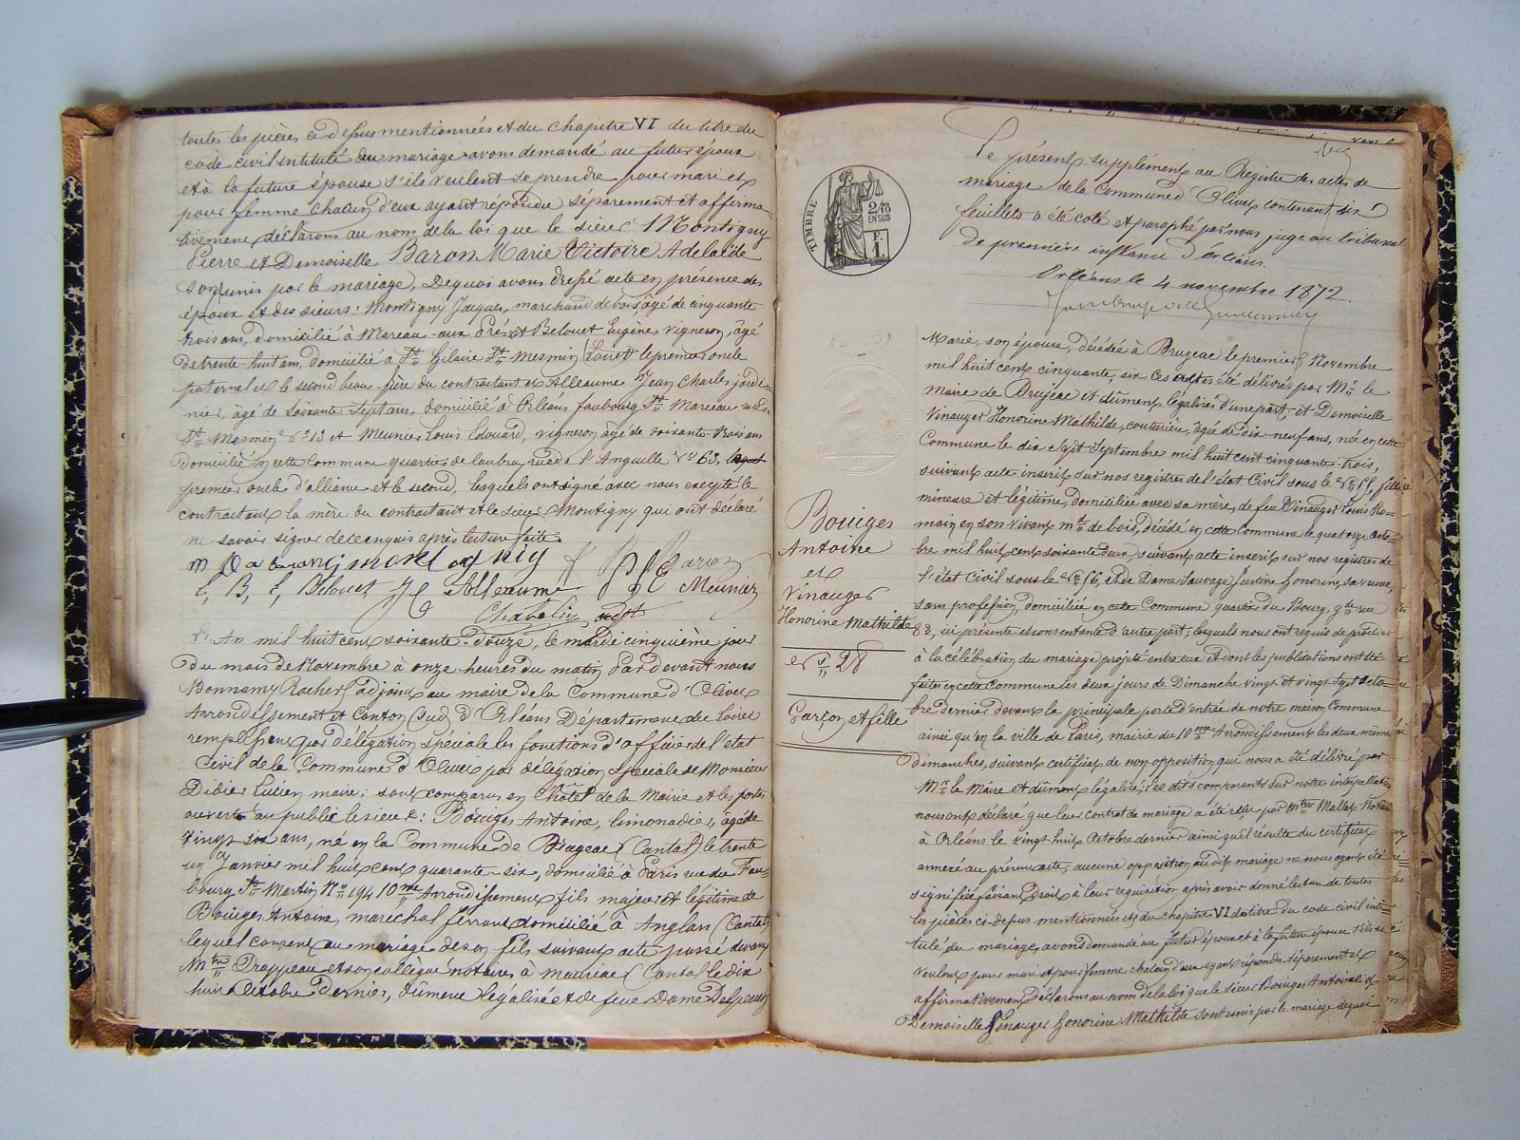 toutes les pièces ci dessus mentionnées et du chapitre VI du titre du
code civil intitulé du mariage avons demandé au futur époux
et à la future épouse s'ils veulent se prendre pour mari et
pour femme chacun d'eux ayant répondu séparément et affirma
tivement déclarons au nom de la loi que le sieur Montigny
Pierre et Demoiselle Baron Marie Victoire Adelaïde
sont unis par le mariage, De quoi avons dressé acte en présence des
époux et des sieurs: Montigny Jacques, marchand de bois âgé de cinquante
trois ans, domicilié à Mareau aux Prés et Belouet Eugène, vigneron, âgé
de trente huit ans, domicilié à St Hilaire St Mesmin (Loiret) le premier oncle
paternel et le second beau frère du contractant et Alleaume Jean Charles jardi
nier, âgé de soixante sept ans, domicilié à Orléans faubourg St Marceau
St Mesmin n° 13 et Meunier Louis Edouard, vigneron âgé de soixante trois ans
domicilié en cette Commune quartier de rue de l'Anguille N° 63,
premier oncle d'alliance et le second, lesquels ont signé avec nous excepté le
contractant la mère du contractant et le sieur Montigny qui ont déclaré
ne savoir signer de ce enquis après lecture faite
montigny Baron
E, B, E, Belouet J C Alleaume L E Meunier
L'An mil huit cent soixante-douze, le mardi cinquième jour
du mois de Novembre à onze heures du matin, Par devant nous
Bonnamy Rocher adjoint au maire de la Commune d'Olivet
Arrondissement et Canton (sud) d'Orléans Département du Loiret
remplissant par délégation spéciale les fonctions d'officier de l'état
Civil de la Commune d'Olivet par délégation spéciale de Monsieur
Didier Lucien maire; sont comparus en l'hôtel de la Mairie et les portes
ouvertes au public le sieur: Bouiges Antoine, limonadier, âgé de
vingt six ans, né en la Commune de Brageac (Cantal) le trente
un Janvier mil huit cent quarante-six, domicilié à Paris rue du Fau
bourg St Martin N° 194 10me Arrondissement fils majeur et légitime de
Bouiges Antoine, maréchal ferrant domicilié à Anglars (Cantal)
lequel consent au mariage de son fils suivant acte passé devant
Mtre Drappeau et son collègue notaires à Mauriac (Cantal) le dix
huit Octobre dernier, dûment légalisé et de feue Dame
Le présent supplément au Registre des actes de
mariage de la Commune d'Olivet contenant six
feuillets a été coté et paraphé par nous juge au tribunal
de première instance d'Orléans.
Orléans le 4 novembre 1872.
TIMBRE
2/10
EN SUS
F
1
Bouiges
Antoine
et
Vinauger
Honorine Mathilde
N° 28
Garçon et fille
Marie, son épouse, décédée à Brageac le premier Novembre
mil huit cent cinquante-six ces actes été délivrés par Mr le
maire de Brageac et dûment légalisés d'une part; et Demoiselle
Vinauger Honorine Mathilde, couturière, âgée de dix-neuf ans, née en cette
Commune le dix sept Septembre mil huit cent cinquante-trois,
suivant acte inscrit sur nos registres de l'état Civil sous le n° 58, fille
mineure et légitime, domiciliée avec sa mère, de feu Vinauger Louis Ro=
main, en son vivant md de bois, décédé en cette Commune le quatorze
bre mil huit cent soixante suivant acte inscrit sur nos registres de
l'état Civil sous le n° 56, et de Dame Sauvage Justine Honorine, sa veuve,
sans profession, domiciliée en cette Commune quartier du Bourg, gde rue
83, ici présente et consentante d'autre part; lesquels nous ont requis de procéder
à la célébration du mariage projeté entre eux et dont les publications ont été
faites en cette Commune les deux jours de Dimanche vingt et vingt-sept octo=
bre dernier devant la principale porte d'entrée de notre maison Commune
ainsi qu'en la ville de Paris, mairie du 10me Arrondissement les deux mêmes
dimanches, suivant certificat de non opposition qui nous a été délivré par
Mr le Maire et dûment légalisé; les dits comparants sur notre interpellation
nous ont déclaré que leur contrat de mariage a été reçu par Mtre Mallet Notaire
à Orléans le vingt huit Octobre dernier ainsi qu'il résulte du certificat
annexé au présent acte, aucune opposition au dit mariage ne nous ayant été
signifiée faisant Droit à leur réquisition après avoir donné lecture de toutes
les pièces ci-dessus mentionnées et du chapitre VI du titre du code civil inti=
tulé du mariage, avons demandé au futur époux et à la future épouse s'ils se
veulent pour mari et pour femme chacun d'eux ayant répondu séparément et
affirmativement déclarons au nom de la loi que le sieur Bouiges Antoine et
Demoiselle Vinauger Honorine Mathilde sont unis par le mariage de quoi